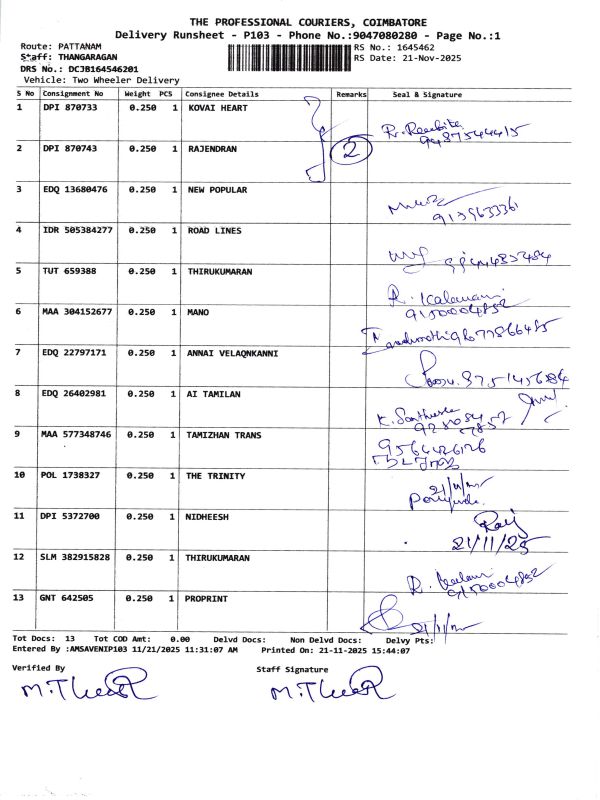 THE PROFESSIONAL COURIERS, COIMBATORE
Delivery Runsheet - P103 - Phone No.:9047080280 - Page No.:1
Route: PATTANAM RS No.: 1645462
Staff: THANGARAGAN RS Date: 21-Nov-2025
DRS No.: DCJB164546201
Vehicle: Two Wheeler Delivery
S No Consignment No Weight PCS Consignee Details Remarks Seal & Signature
1 DPI 870733 0.250 1 KOVAI HEART
9487544415
2 DPI 870743 0.250 1 RAJENDRAN 2
3 EDQ 13680476 0.250 1 NEW POPULAR
4 IDR 505384277 0.250 1 ROAD LINES
5 TUT 659388 0.250 1 THIRUKUMARAN
9150004852
6 MAA 304152677 0.250 1 MANO
7 EDQ 22797171 0.250 1 ANNAI VELAQNKANNI
8 EDQ 26402981 0.250 1 AI TAMILAN
9 MAA 577348746 0.250 1 TAMIZHAN TRANS
10 POL 1738327 0.250 1 THE TRINITY
11 DPI 5372700 0.250 1 NIDHEESH
21/11/25
12 SLM 382915828 0.250 1 THIRUKUMARAN
13 GNT 642505 0.250 1 PROPRINT
Tot Docs: 13 Tot COD Amt: 0.00 Delvd Docs: Non Delvd Docs: Delvy Pts:
Entered By :AMSAVENIP103 11/21/2025 11:31:07 AM Printed On: 21-11-2025 15:44:07
Verified By Staff Signature